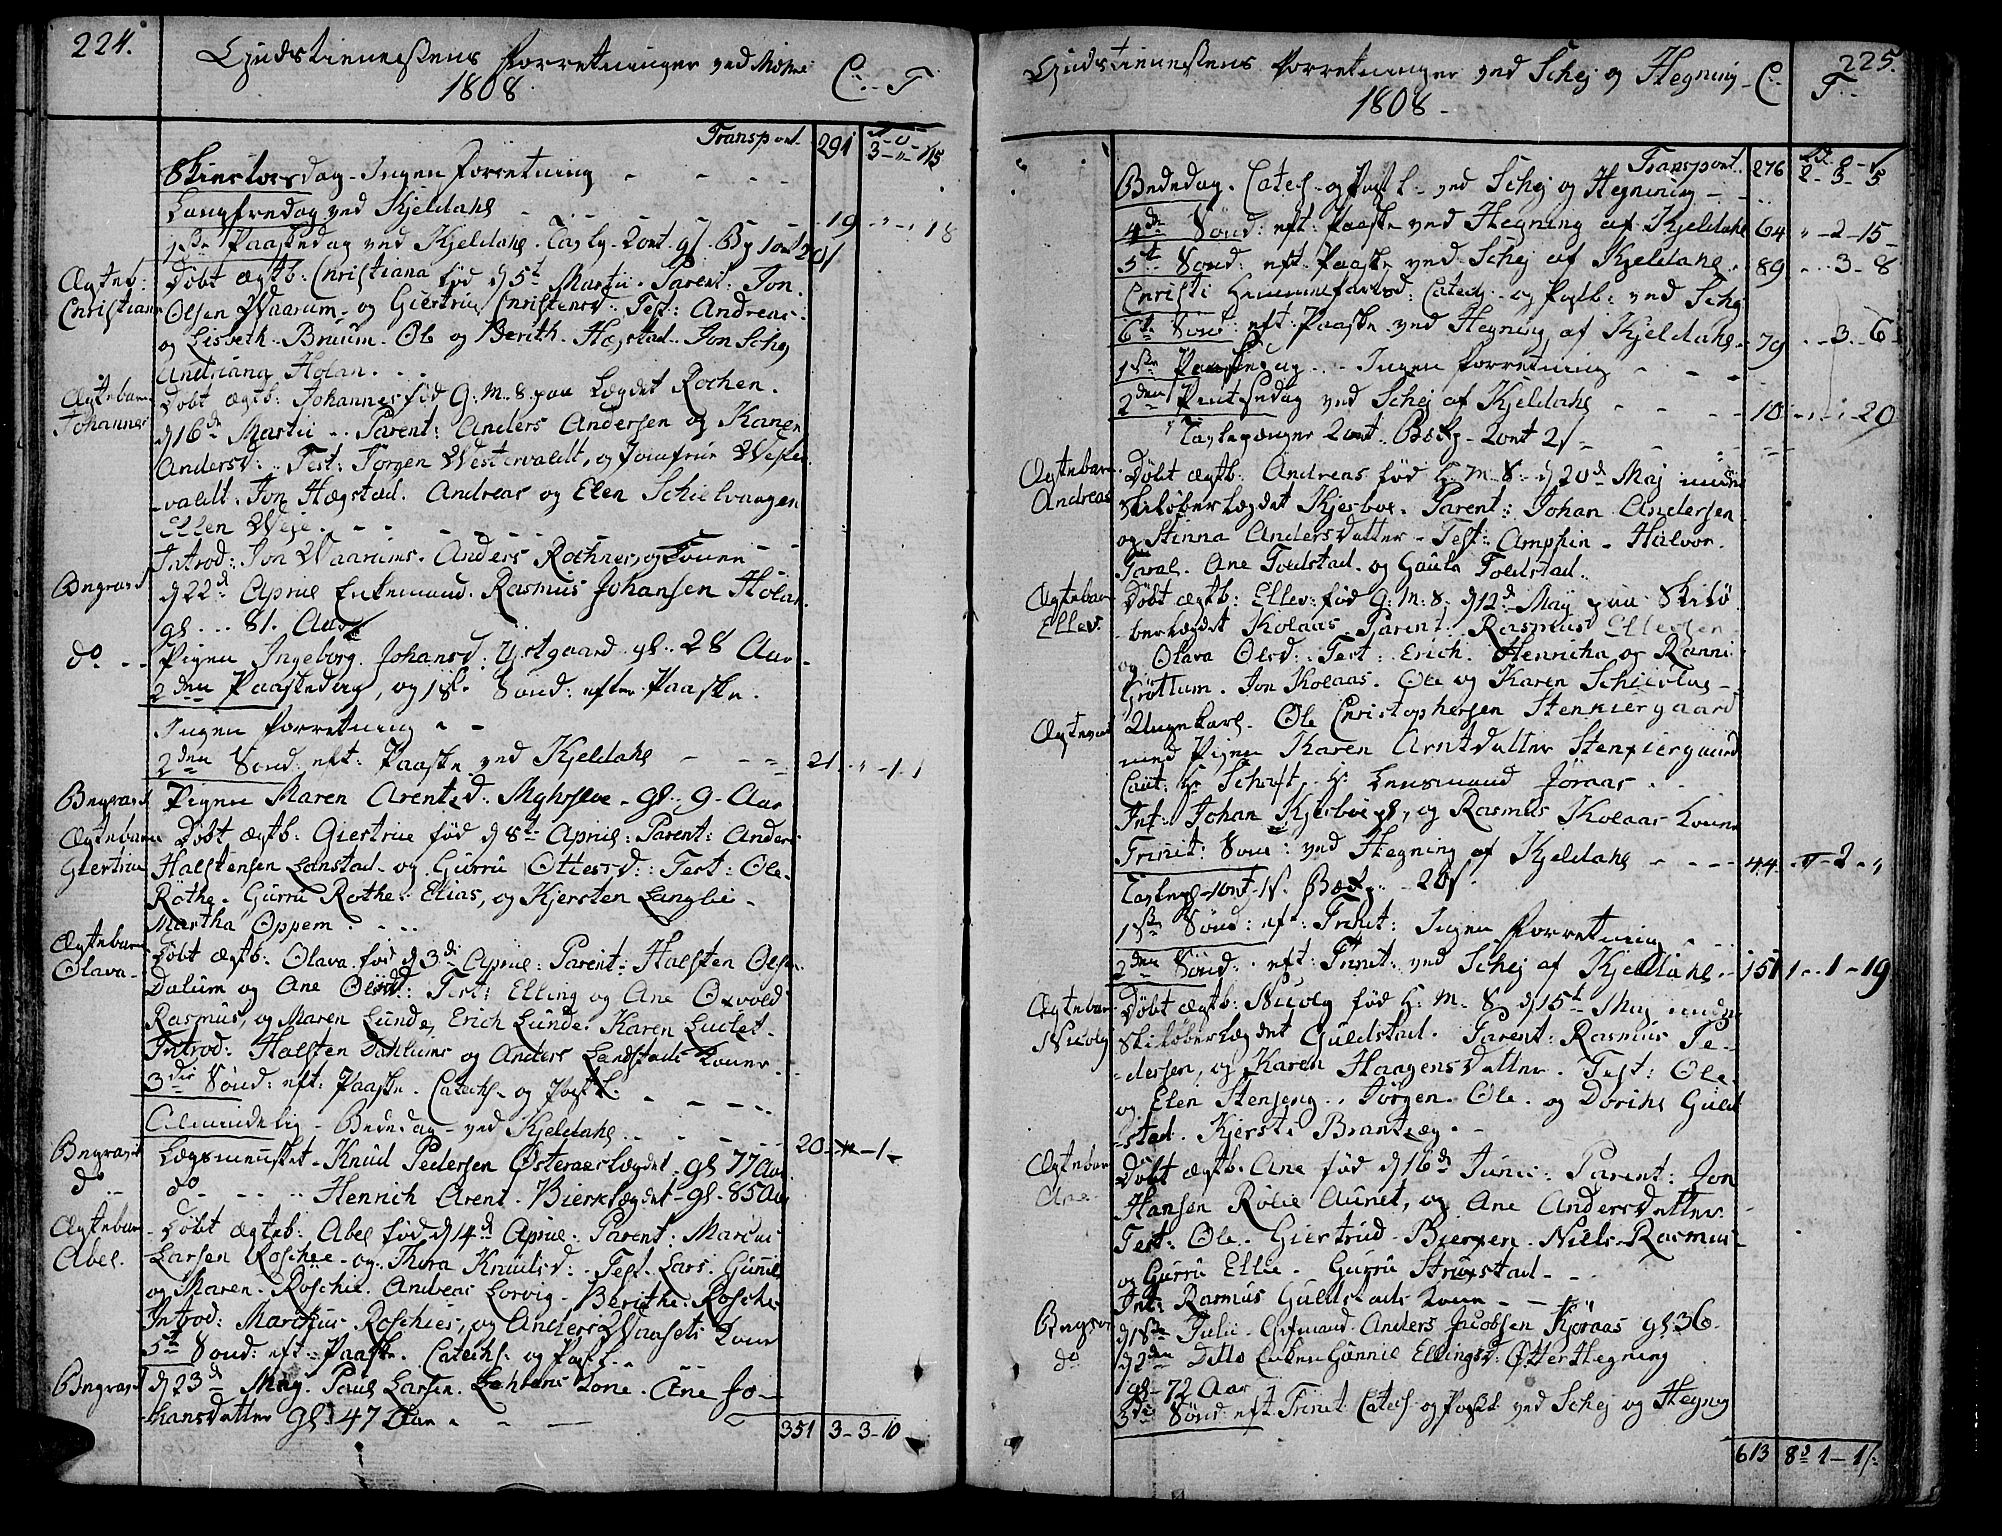 224.
Gudstienestens Forretninger ved
1808.
C. T
Transport 291 3 - " - 15
Skiertorsdag - Ingen Forretning
Langfredag ved Kjeldahl 19 " - " 18
1ste Paaskedag ved Kjeldahl.
Ægteb: Døbt ægtb: Christiana fød d 5t Martii. Parent: Jon
Christiana Olsen Waarum og Giertrud Christensd: Test: Andreas
og Lisbeth Bruum. Ole og Berith Hægstad. Jon Schej
Holan.
Ægtebarn Døbt ægtb: Johannes fød G. M. 8 paa Lægdet Rochen.
Johannes d 16de Martii. Parent: Anders Andersen og Karen
Andersd: Test: Jørgen Westervaldt, og Jomfrue Wester
valdt. Jon Hægstad. Andreas og Elen Schielvaagen
Ellen Weje.
Introd: Jon Waarums. Anders Rochnes, og Koner
Begravet d 22de Aprill Enkemand Rasmus Johansen Holan
gl. 81. Aar
do Pigen Ingeborg Johansd: Ystgaard gl. 28 Aar
2den Paaskedag, og 1ste Sønd: efter Paaske.
Ingen Forretning
2den Sønd: eft: Paaske ved Kjeldahl 21 " - 1 -
Begravet Pigen Maren Arentzd: gl. 9 Aar
Ægtebarn Døbt ægtb: Giertrue fød d 8te Aprill: Parent: Anders
Giertrue Halstensen Lanstad og Gurru Ottersd: Test: Ole
Røthe. Gurru Røthe. Elias, og Kjersten Langlie
Martha Oppem.
Ægtebarn Døbt ægtb: Olava fød d 3di Aprill: Parent: Halsten Olsen
Olava Dalum og Ane Olsd: Test: Elling og Ane Oxvold
Rasmus, og Maren Lunde, Erich Lunde. Karen
Introd: Halsten Dahlums og Anders Landstads Koner
3die Sønd: eft: Paaske. Catechs. og Postl.
Almindelig Bededag ved Kjeldahl 20 - " - 1 -
Begravet Lægsmensket Knud Pedersen Østeraaslegdet gl 77 Aar
do do Henrich Arent Bierklægdet gl. 85 Aar
Ægtebarn Døbt ægtb: Abel fød d 14de Aprill Parent: Marcus
Abel. Larsen Roschie og Thora Knudsd: Test. Lars. Gunild
og Maren Roschie. Andreas Lorvig. Berithe Roschie
Introd: Marckus Roschies, og Anders Waasets Koner
5te Sønd: eft: Paaske. Catechs. og Postl.
Begravet d 23de May. Paul Larsen Kone. Ane Jo-
hansdatter gl. 47 Aar.
351 3 - 3 - 10
225.
Gudstienestens Forretninger ved Schej og Hegning
1808
C. T.
Transport 276 2 - 3 - 5
Bededag. Catech. og Postl. ved Schej og Hegning
4de Sønd: eft: Paaske ved Hegning af Kjeldahl 64 " - 2 - 15
5te Sønd: eft: Paaske ved Schej af Kjeldahl 89 - 3 - 8
Christi Himmelfartsd: Catech. og Postl: ved Schej
6te Sønd: eft: Paaske ved Hegning af Kjeldahl 79 - 3 - 6
1ste Pintsedag. Ingen Forretning
2den Pintsedag ved Schej af Kjeldahl 10 - 20
Ægtebarn Døbt ægtb: Andreas fød H. M. 8 d 20de Maj under
Andreas Skiløberlægdet Kjerboe. Parent: Johan Andersen
og Stinna Andersdatter. Test: Amphin. Halvor.
Taral. Ane Toldstad. og Gaula Toldstad.
Ægtebarn Døbt ægtb: Ellev: fød G: M: 8. d 12de May paa Skilø
Ellev. berlægdet Kolaas. Parent. Rasmus Ellefsen
og Olava Olsd: Test: Erich. Henricha og Ranni
Grøttum. Jon Kolaas. Ole og Karen
Ægteviet Ungekarl. Ole Christophersen Stenkiergaard
med Pigen Karen Arntdatter Stenkiergaard
Caut: Hr Schaft, Hr Lensmand Jøraas
Int: Johan Kjerboes, og Rasmus Kolaas Koner
Trinit: Sønd: ved Hegning af Kjeldahl 44 - 2 - "
1ste Sønd: eft: Trinit: Ingen Forretning
2den Sønd: eft: Trinit: ved Schej af Kjeldahl 151 1 - 1 - 19
Ægtebarn Døbt ægtb: Nicolj fød H. M. 8 d 15te Maj under
Nicolj Skiløberlægdet Guldstad. Parent: Rasmus Pe-
dersen, og Karen Haagensdatter. Test: Ole
og Elen Stenseng. Jørgen. Ole. og Dorthe Guld
stad. Kjersti Brantzæg.
Ægtebarn Døbt ægtb. Ane fød d 16de Junii: Parent: Jon
Ane. Hansen Rølie Aunet, og Ane Andersdatter
Test: Ole. Giertrud Bierken. Niels. Rasmus
og Gurru Ellie. Gurru Strugstad
Int: Rasmus Guldstads Kone
Begravet d 1ste Julii. Anders Jacobsen Kjøraas gl 36.
do d 2den Ditto Enken Gunnil Ellingsd: Øtter Hegning
gl. 72 Aar
3die Sønd: eft: Trinit: Catech og Postl: ved Schej og Hegning
613 8 1 - 1